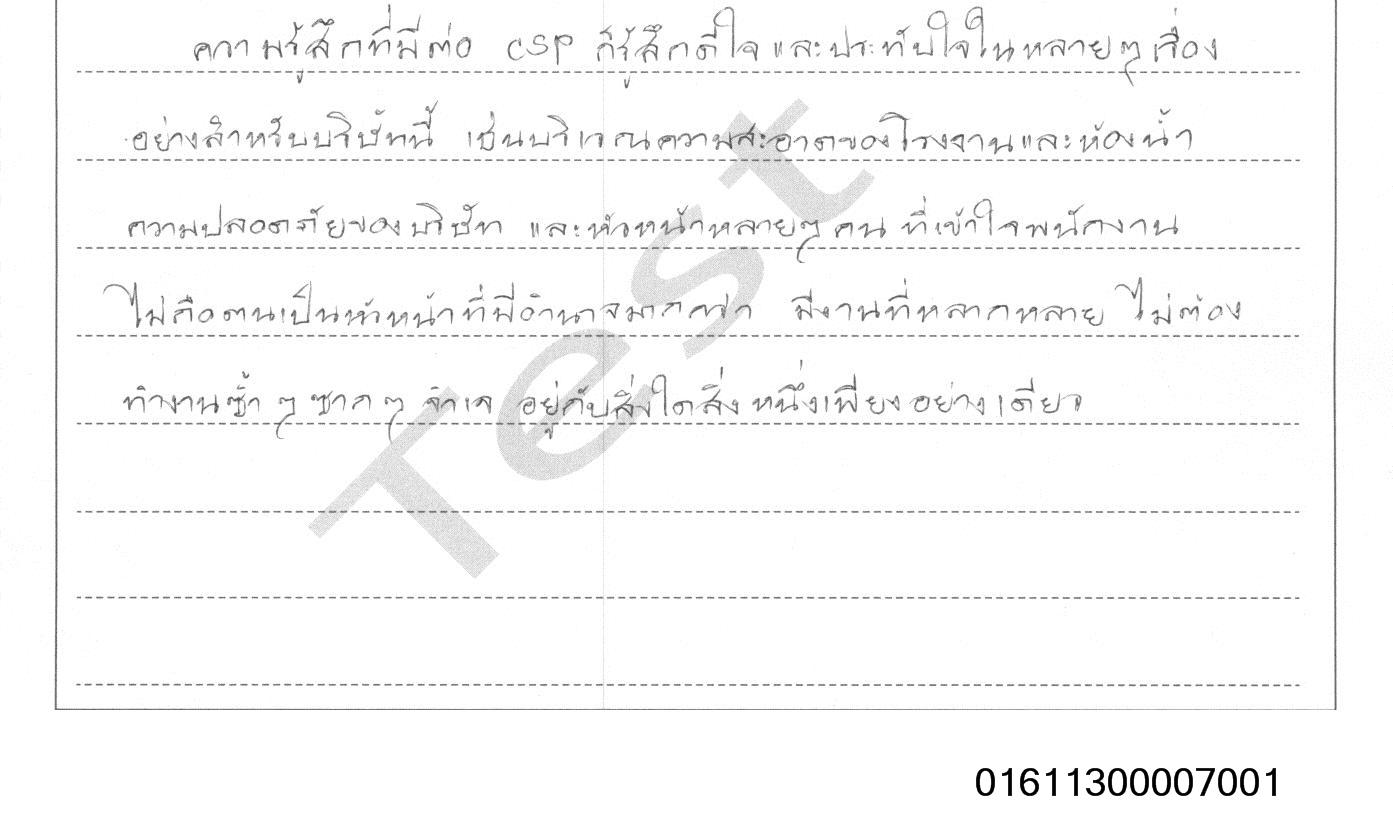 ความรู้สึกที่มีต่อ CSP ก็รู้สึกดีใจ และประทับใจในหลายๆ เรื่อง
อย่างสำหรับบริษัทนี้ เช่นบริเวณความสะอาดของโรงงานและห้องน้ำ
ความปลอดภัยของบริษัท และหัวหน้าหลายๆ คน ที่เข้าใจพนักงาน
ไม่ถือตนเป็นหัวหน้าที่มีอำนาจมากกว่า มีงานที่หลากหลาย ไม่ต้อง
ทำงานซ้ำ ๆ ซาก ๆ จำเจ อยู่กับสิ่งใดสิ่งหนึ่งเพียงอย่างเดียว
Test
01611300007001